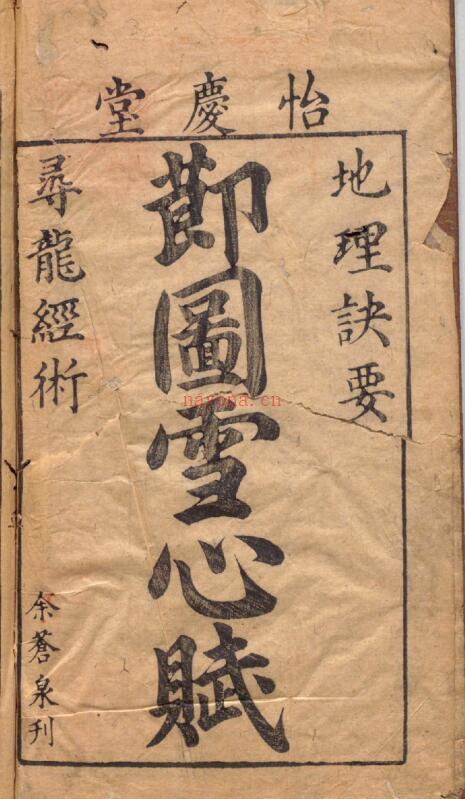 怡慶堂
地理訣要
節圖雪心賦
尋龍經術
余蒼泉刊
narona.cn